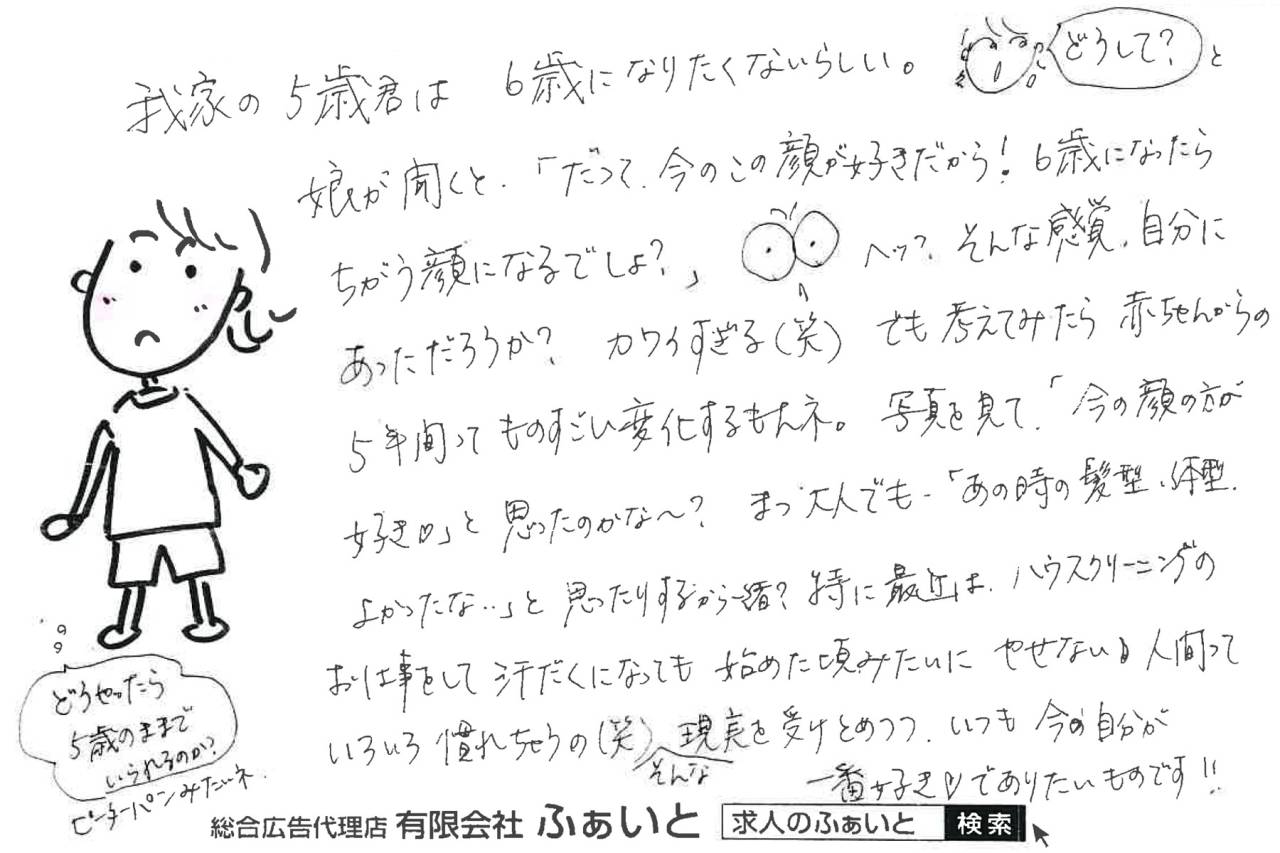 我家の5歳君は 6歳になりたくないらしい。 どうして? と
娘が聞くと、「だって、今のこの顔が好きだから! 6歳になったら
ちがう顔になるでしょ?」 ヘッ? そんな感覚、自分に
あっただろうか? カワイすぎる(笑) でも考えてみたら赤ちゃんからの
5年間ってものすごい変化するもんネ。 写真を見て、「今の顔の方が
好き♡」と思ったのかな〜? まっ大人でも「あの時の髪型、体型、
よかったな…」と思ったりするから一緒? 特に最近は、ハウスクリーニングの
お仕事をして汗だくになっても始めた頃みたいにやせない 人間って
いろいろ慣れちゃうの(笑) そんな現実を受けとめつつ、いつも今の自分が
一番好き♡でありたいものです!!
どうやったら
5歳のままで
いられるのか?
ピーターパンみたいネ。
総合広告代理店 有限会社 ふぁいと 求人のふぁいと 検索